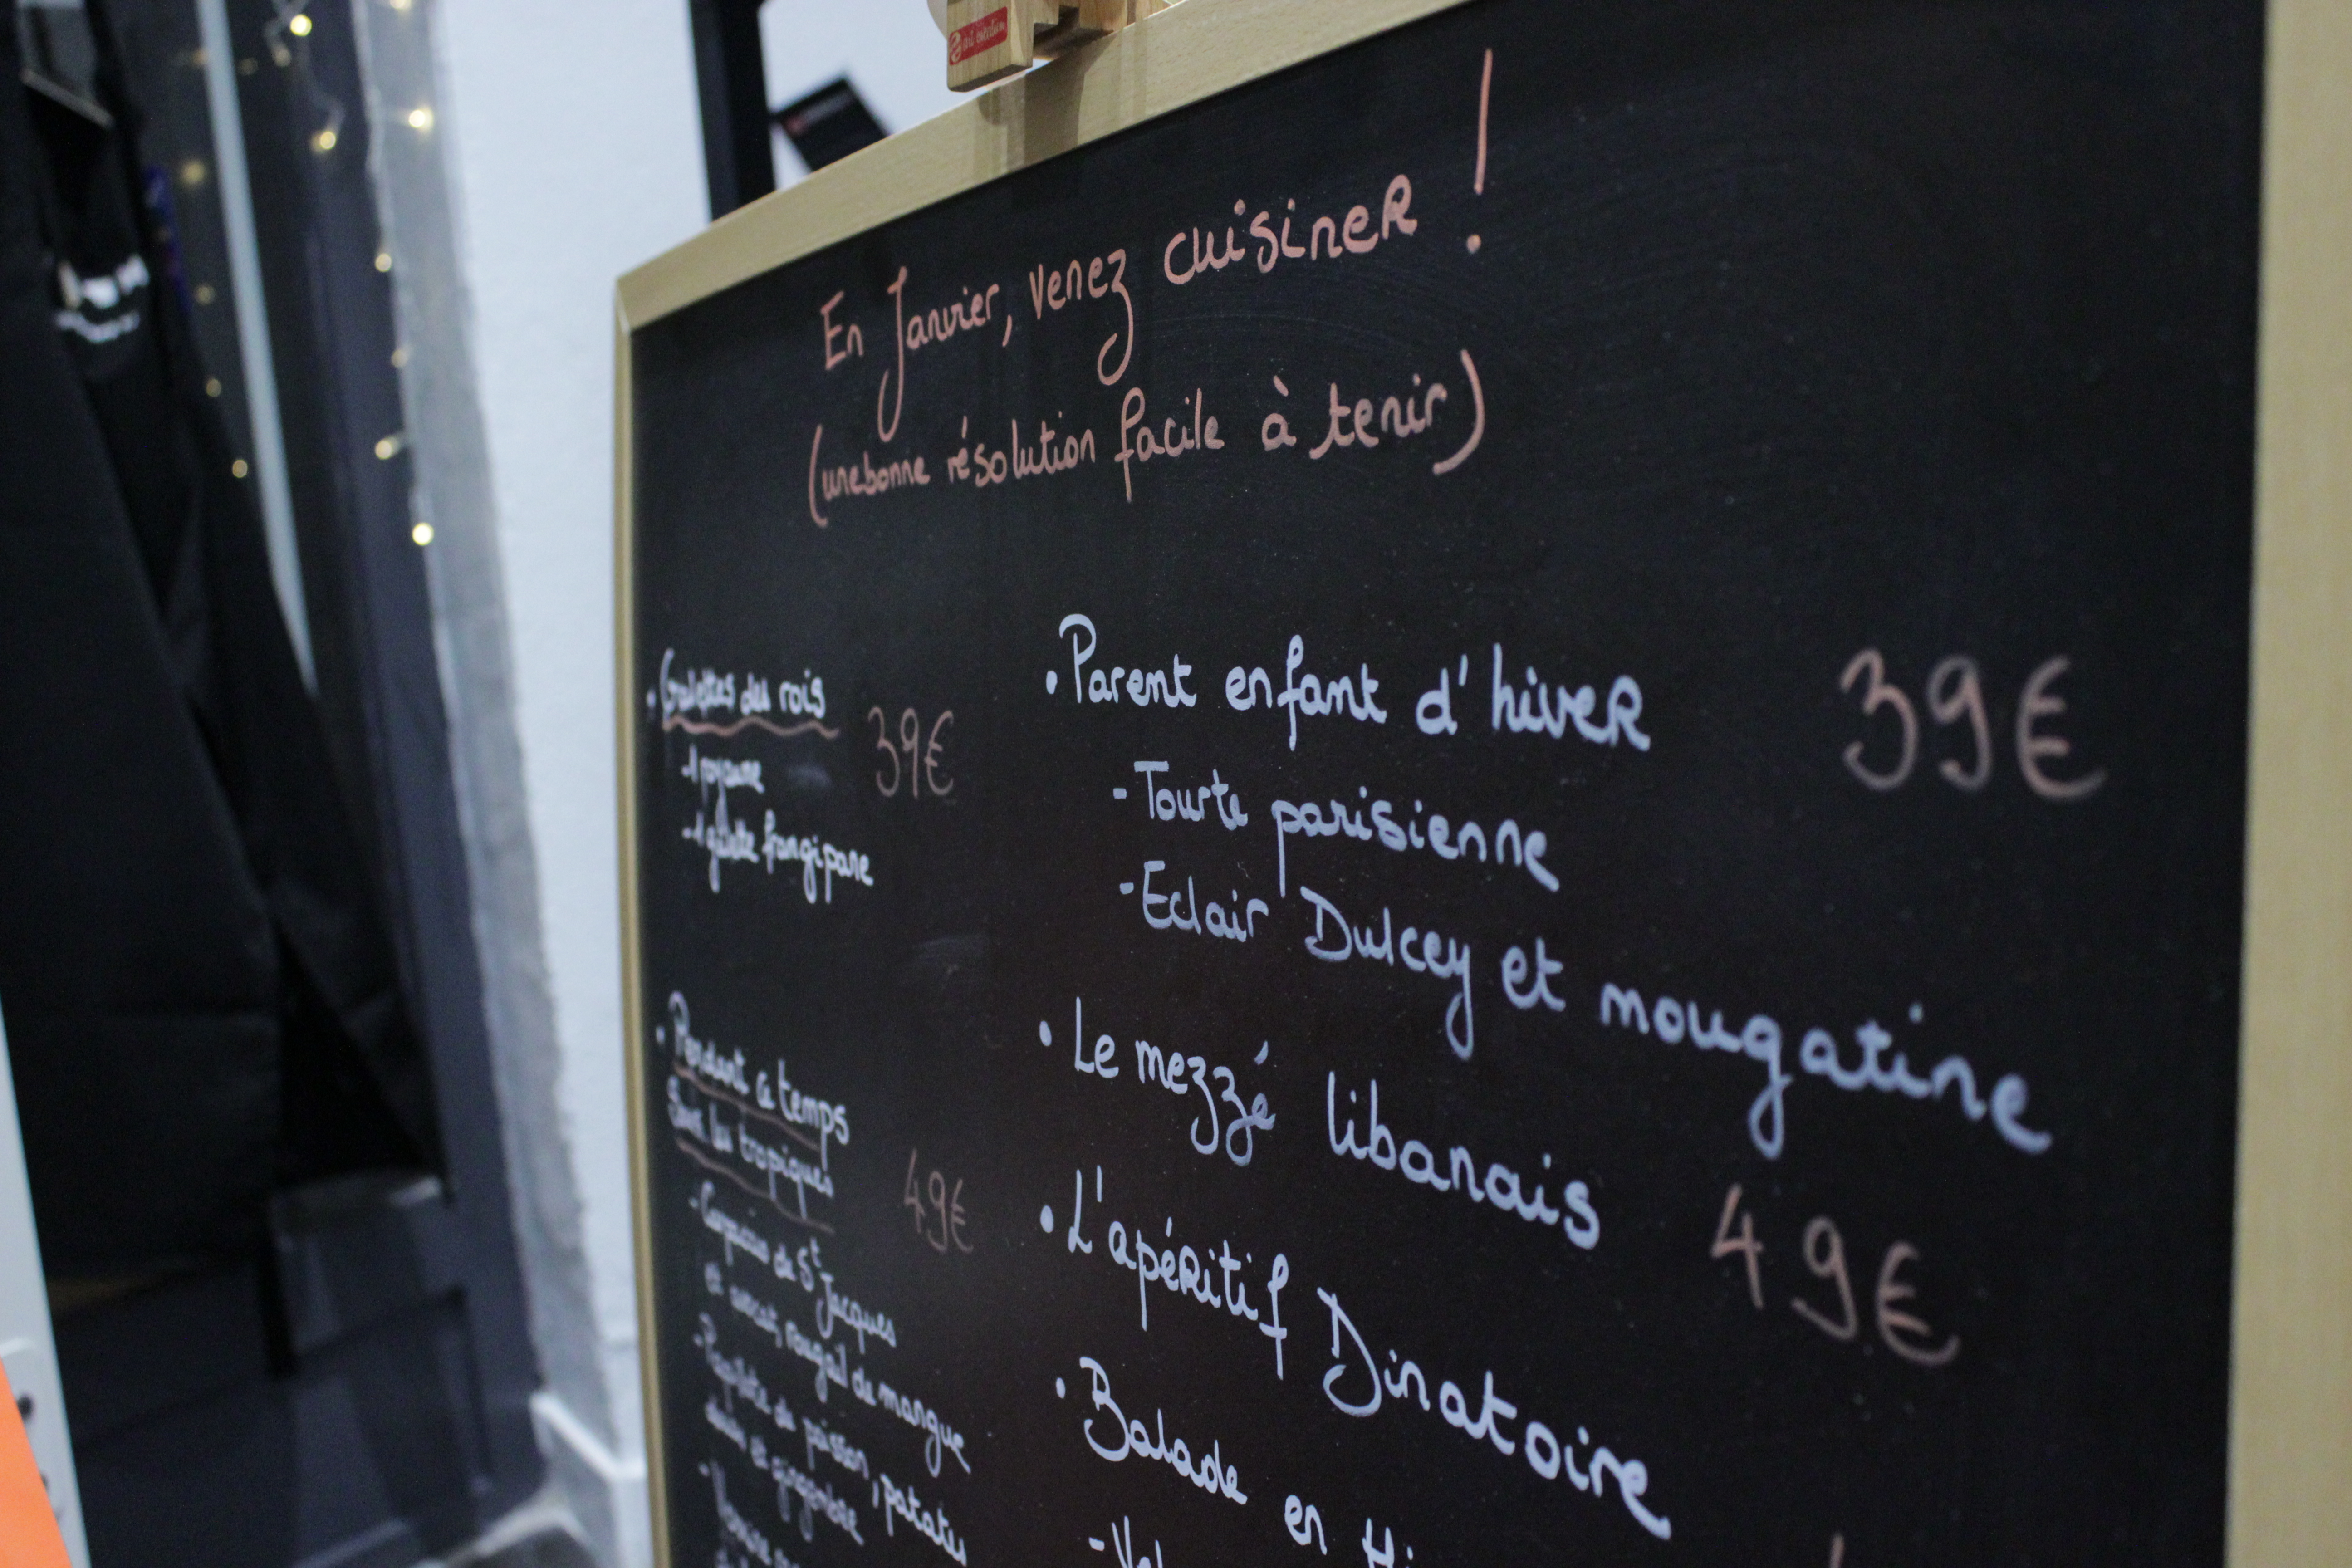 art création
En Janvier, venez cuisiner !
(une bonne résolution facile à tenir)
• Galettes des rois
39€
- 1 royaume
- 1 galette frangipane
• Pendant ce temps
Sous les tropiques
49€
- Carpaccio de St Jacques
et avocat, rougail de mangue
- Papillote de poisson, patates
douces et gingembre
- Verrine
• Parent enfant d'hiver 39€
- Tourte parisienne
- Eclair Dulcey et nougatine
• Le mezzé libanais 49€
• L'apéritif Dinatoire
• Balade en